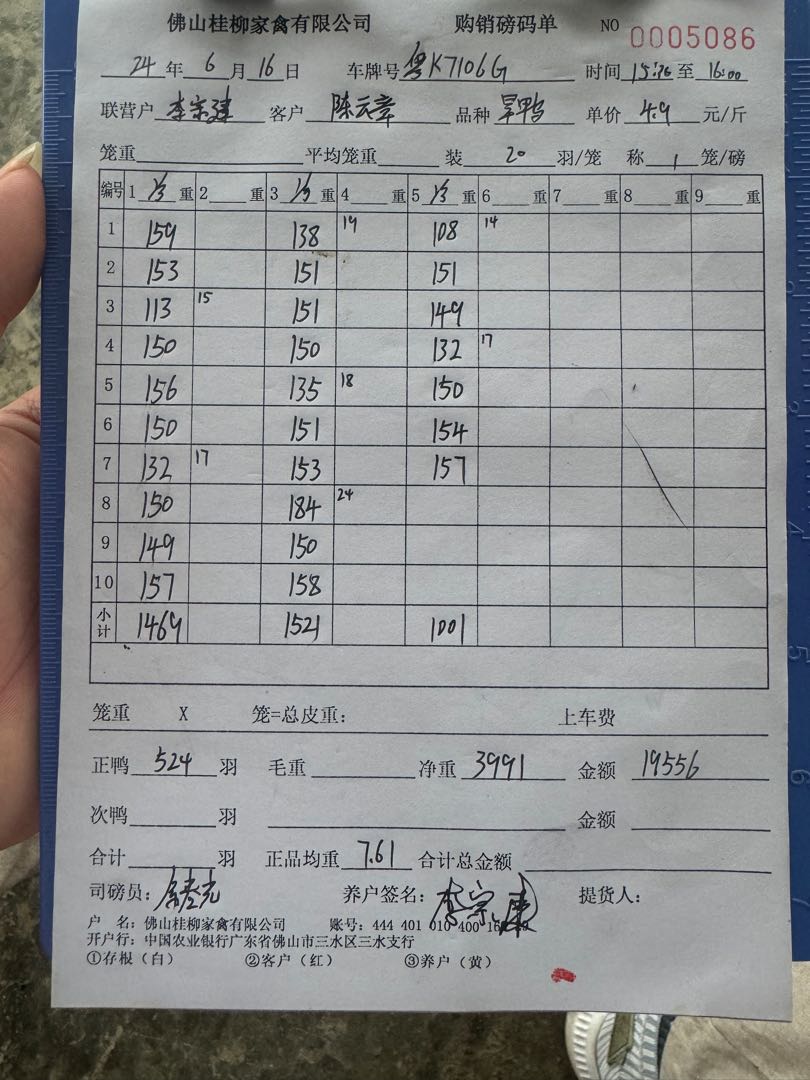 佛山桂柳家禽有限公司 购销磅码单 NO 0005086
24年6月16日 车牌号粤K7106G 时间15:26至16:00
联营户李宗建 客户陈云章 品种旱鸭 单价4.9元/斤
笼重 平均笼重 装20羽/笼 称1笼/磅
编号 1净重 2重 3净重 4重 5净重 6重 7重 8重 9重
1 159 138 19 108 14
2 153 151 151
3 113 15 151 149
4 150 150 132 17
5 156 135 18 150
6 150 151 154
7 132 17 153 157
8 150 184 24
9 149 150
10 157 158
小计 1469 1521 1001
笼重 X 笼=总皮重: 上车费
正鸭524羽 毛重 净重3991 金额19556
次鸭羽 金额
合计羽 正品均重7.61 合计总金额
司磅员: 养户签名:李宗建 提货人:
户 名: 佛山桂柳家禽有限公司 账号: 444 401 010 400
开户行: 中国农业银行广东省佛山市三水区三水支行
①存根(白) ②客户(红) ③养户(黄)